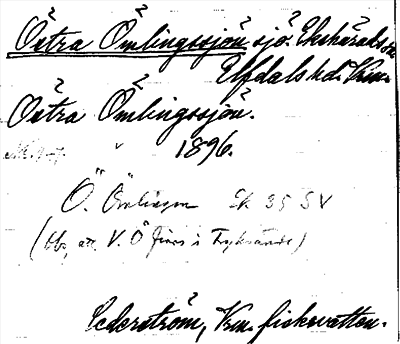 Östra Ömlingssjön sjö. Ekshärads sn
Elfdals hd. Vrm.
Östra Ömlingssjön.
1896.
Ö. Ömlingen Ek 35 SV
(Obs, att V. Ö finns i Fryksände)
Cederström, Vrm. fiskevatten.